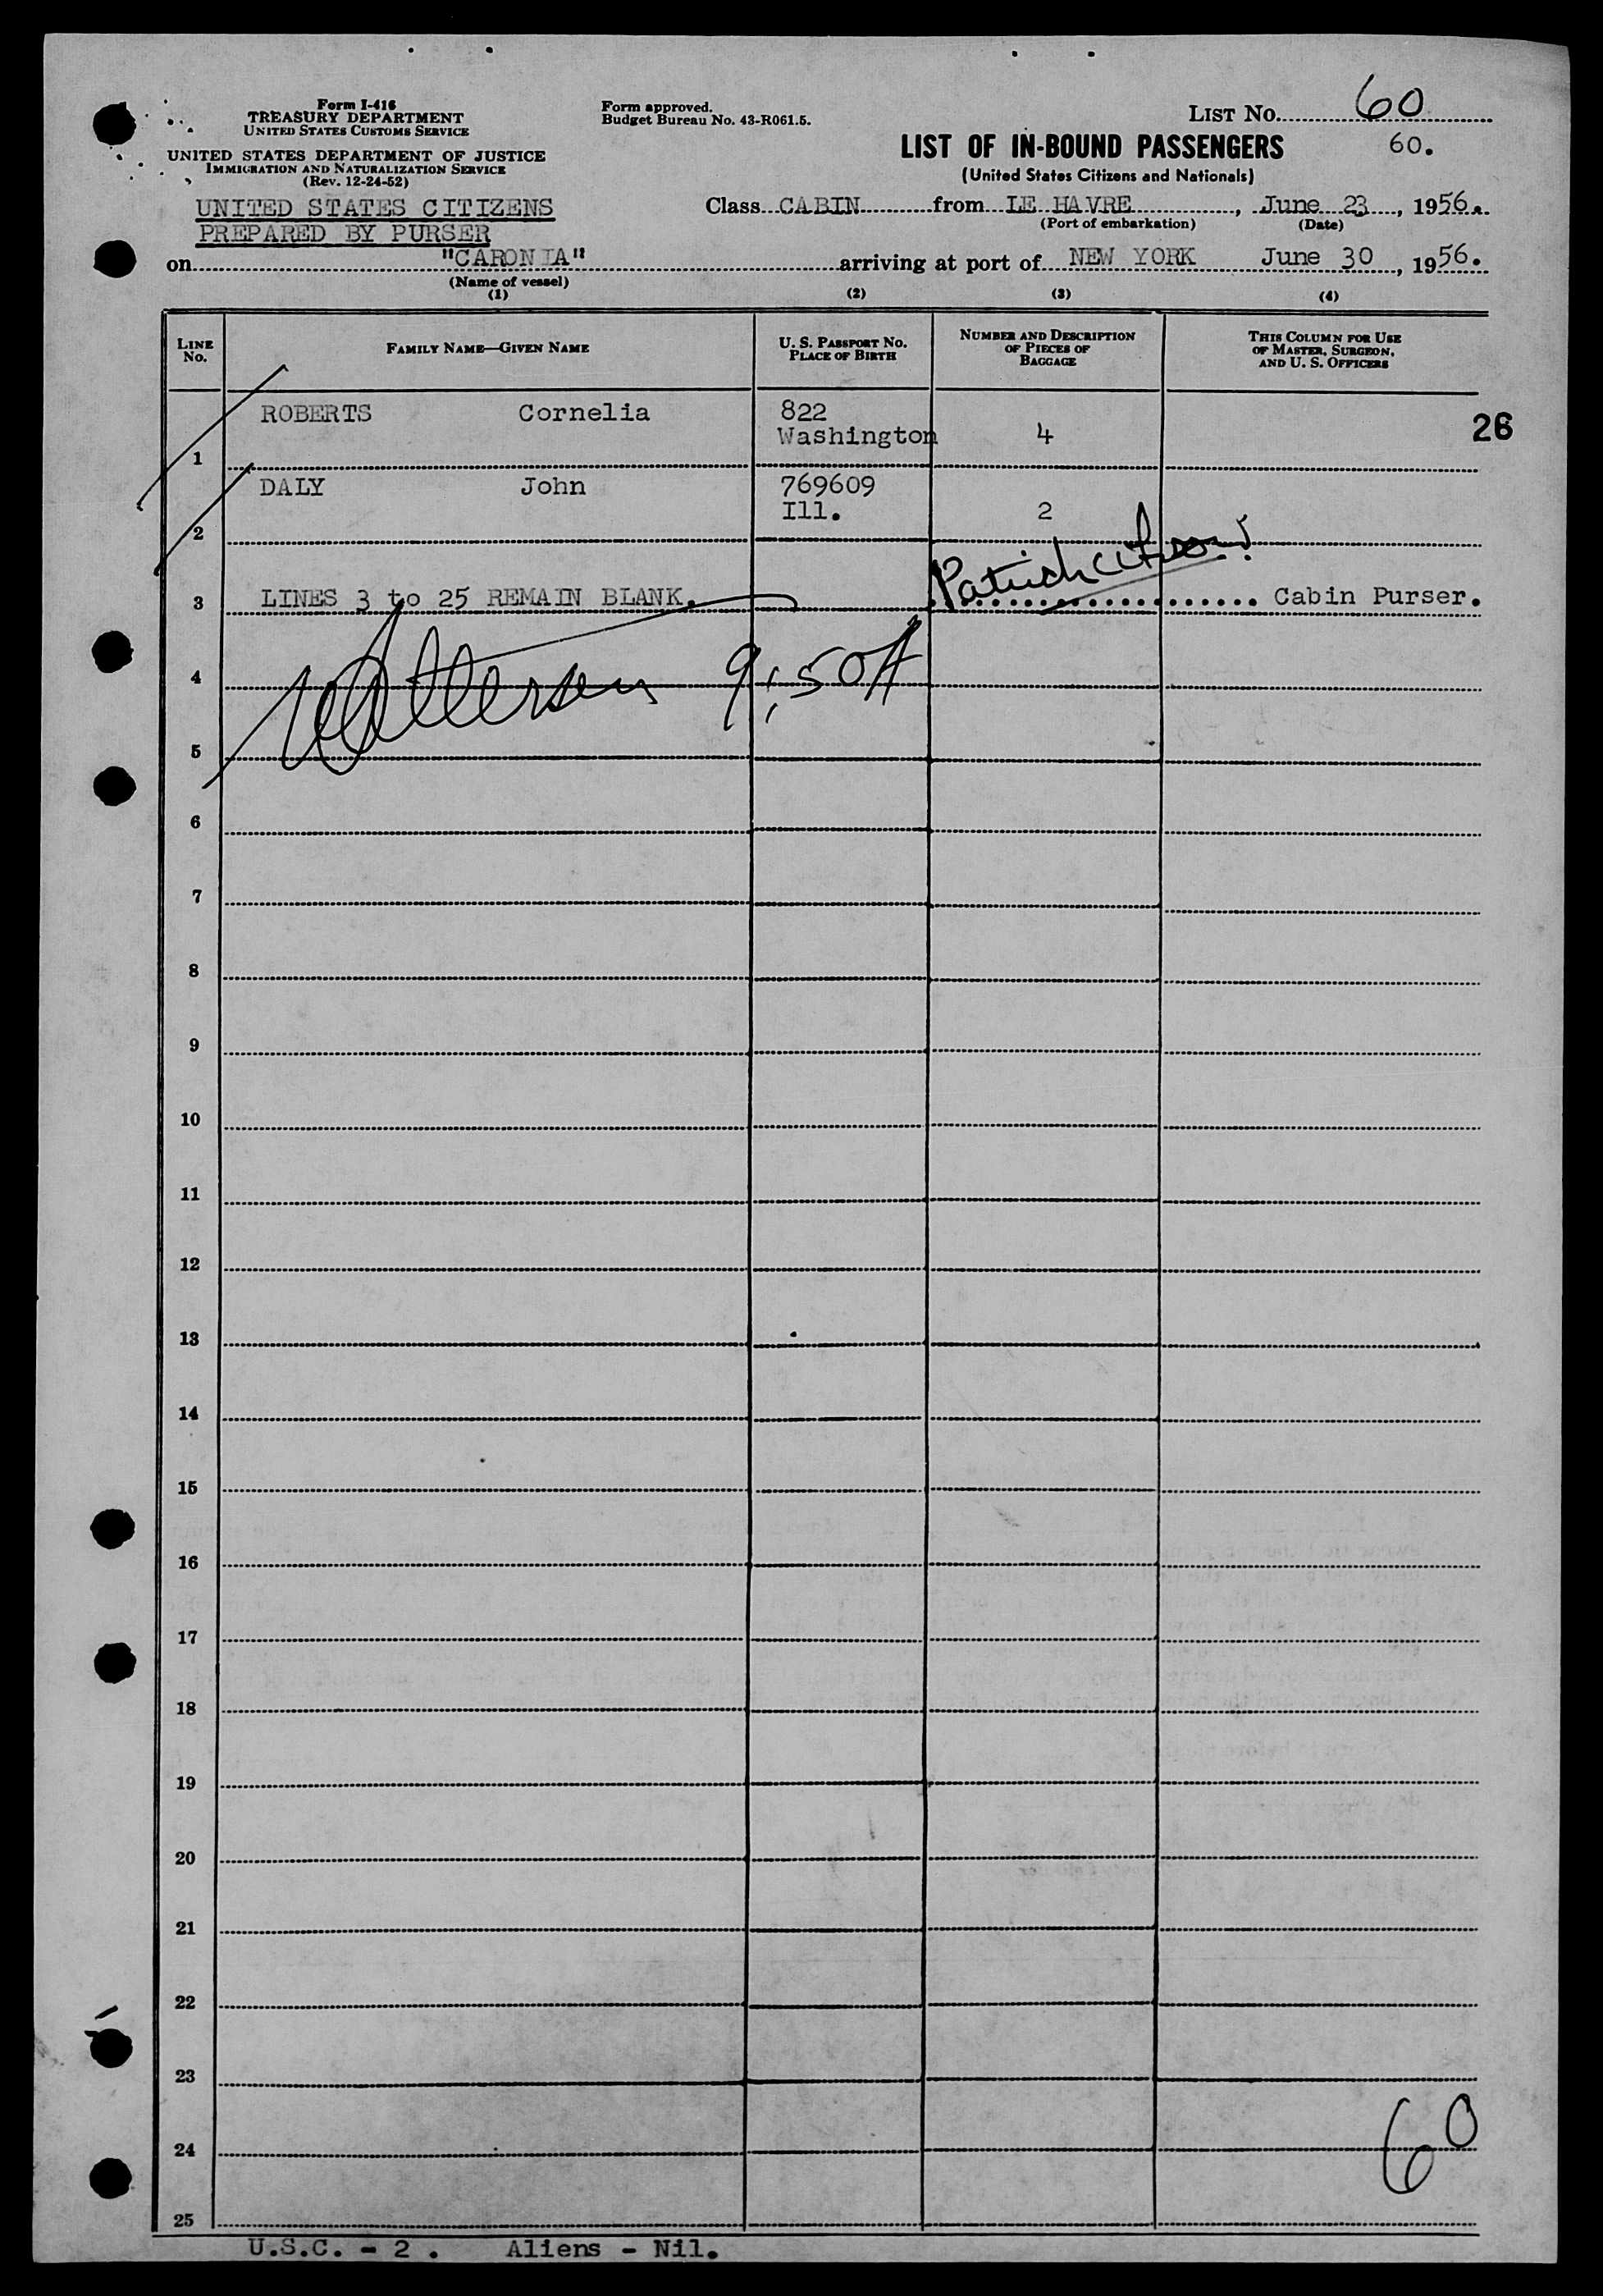 Form I-416
TREASURY DEPARTMENT
UNITED STATES CUSTOMS SERVICE
UNITED STATES DEPARTMENT OF JUSTICE
IMMIGRATION AND NATURALIZATION SERVICE
(Rev. 12-24-52)
UNITED STATES CITIZENS
PREPARED BY PURSER
Form approved.
Budget Bureau No. 43-R061.5.
LIST NO. 60
60.
LIST OF IN-BOUND PASSENGERS
(United States Citizens and Nationals)
Class CABIN from LE HAVRE, June 23, 1956.
(Port of embarkation) (Date)
on "CARONIA" arriving at port of NEW YORK June 30, 1956.
(Name of vessel)
(1) (2) (3) (4)
LINE NO.
FAMILY NAME—GIVEN NAME
U. S. PASSPORT NO.
PLACE OF BIRTH
NUMBER AND DESCRIPTION
OF PIECES OF
BAGGAGE
THIS COLUMN FOR USE
OF MASTER, SURGEON,
AND U. S. OFFICERS
ROBERTS Cornelia 822
Washington 4 26
1
DALY John 769609
Ill. 2
2
3 LINES 3 to 25 REMAIN BLANK. Cabin Purser.
4 9:50A
5
6
7
8
9
10
11
12
13
14
15
16
17
18
19
20
21
22
23
24 60
25
U.S.C. - 2. Aliens - Nil.